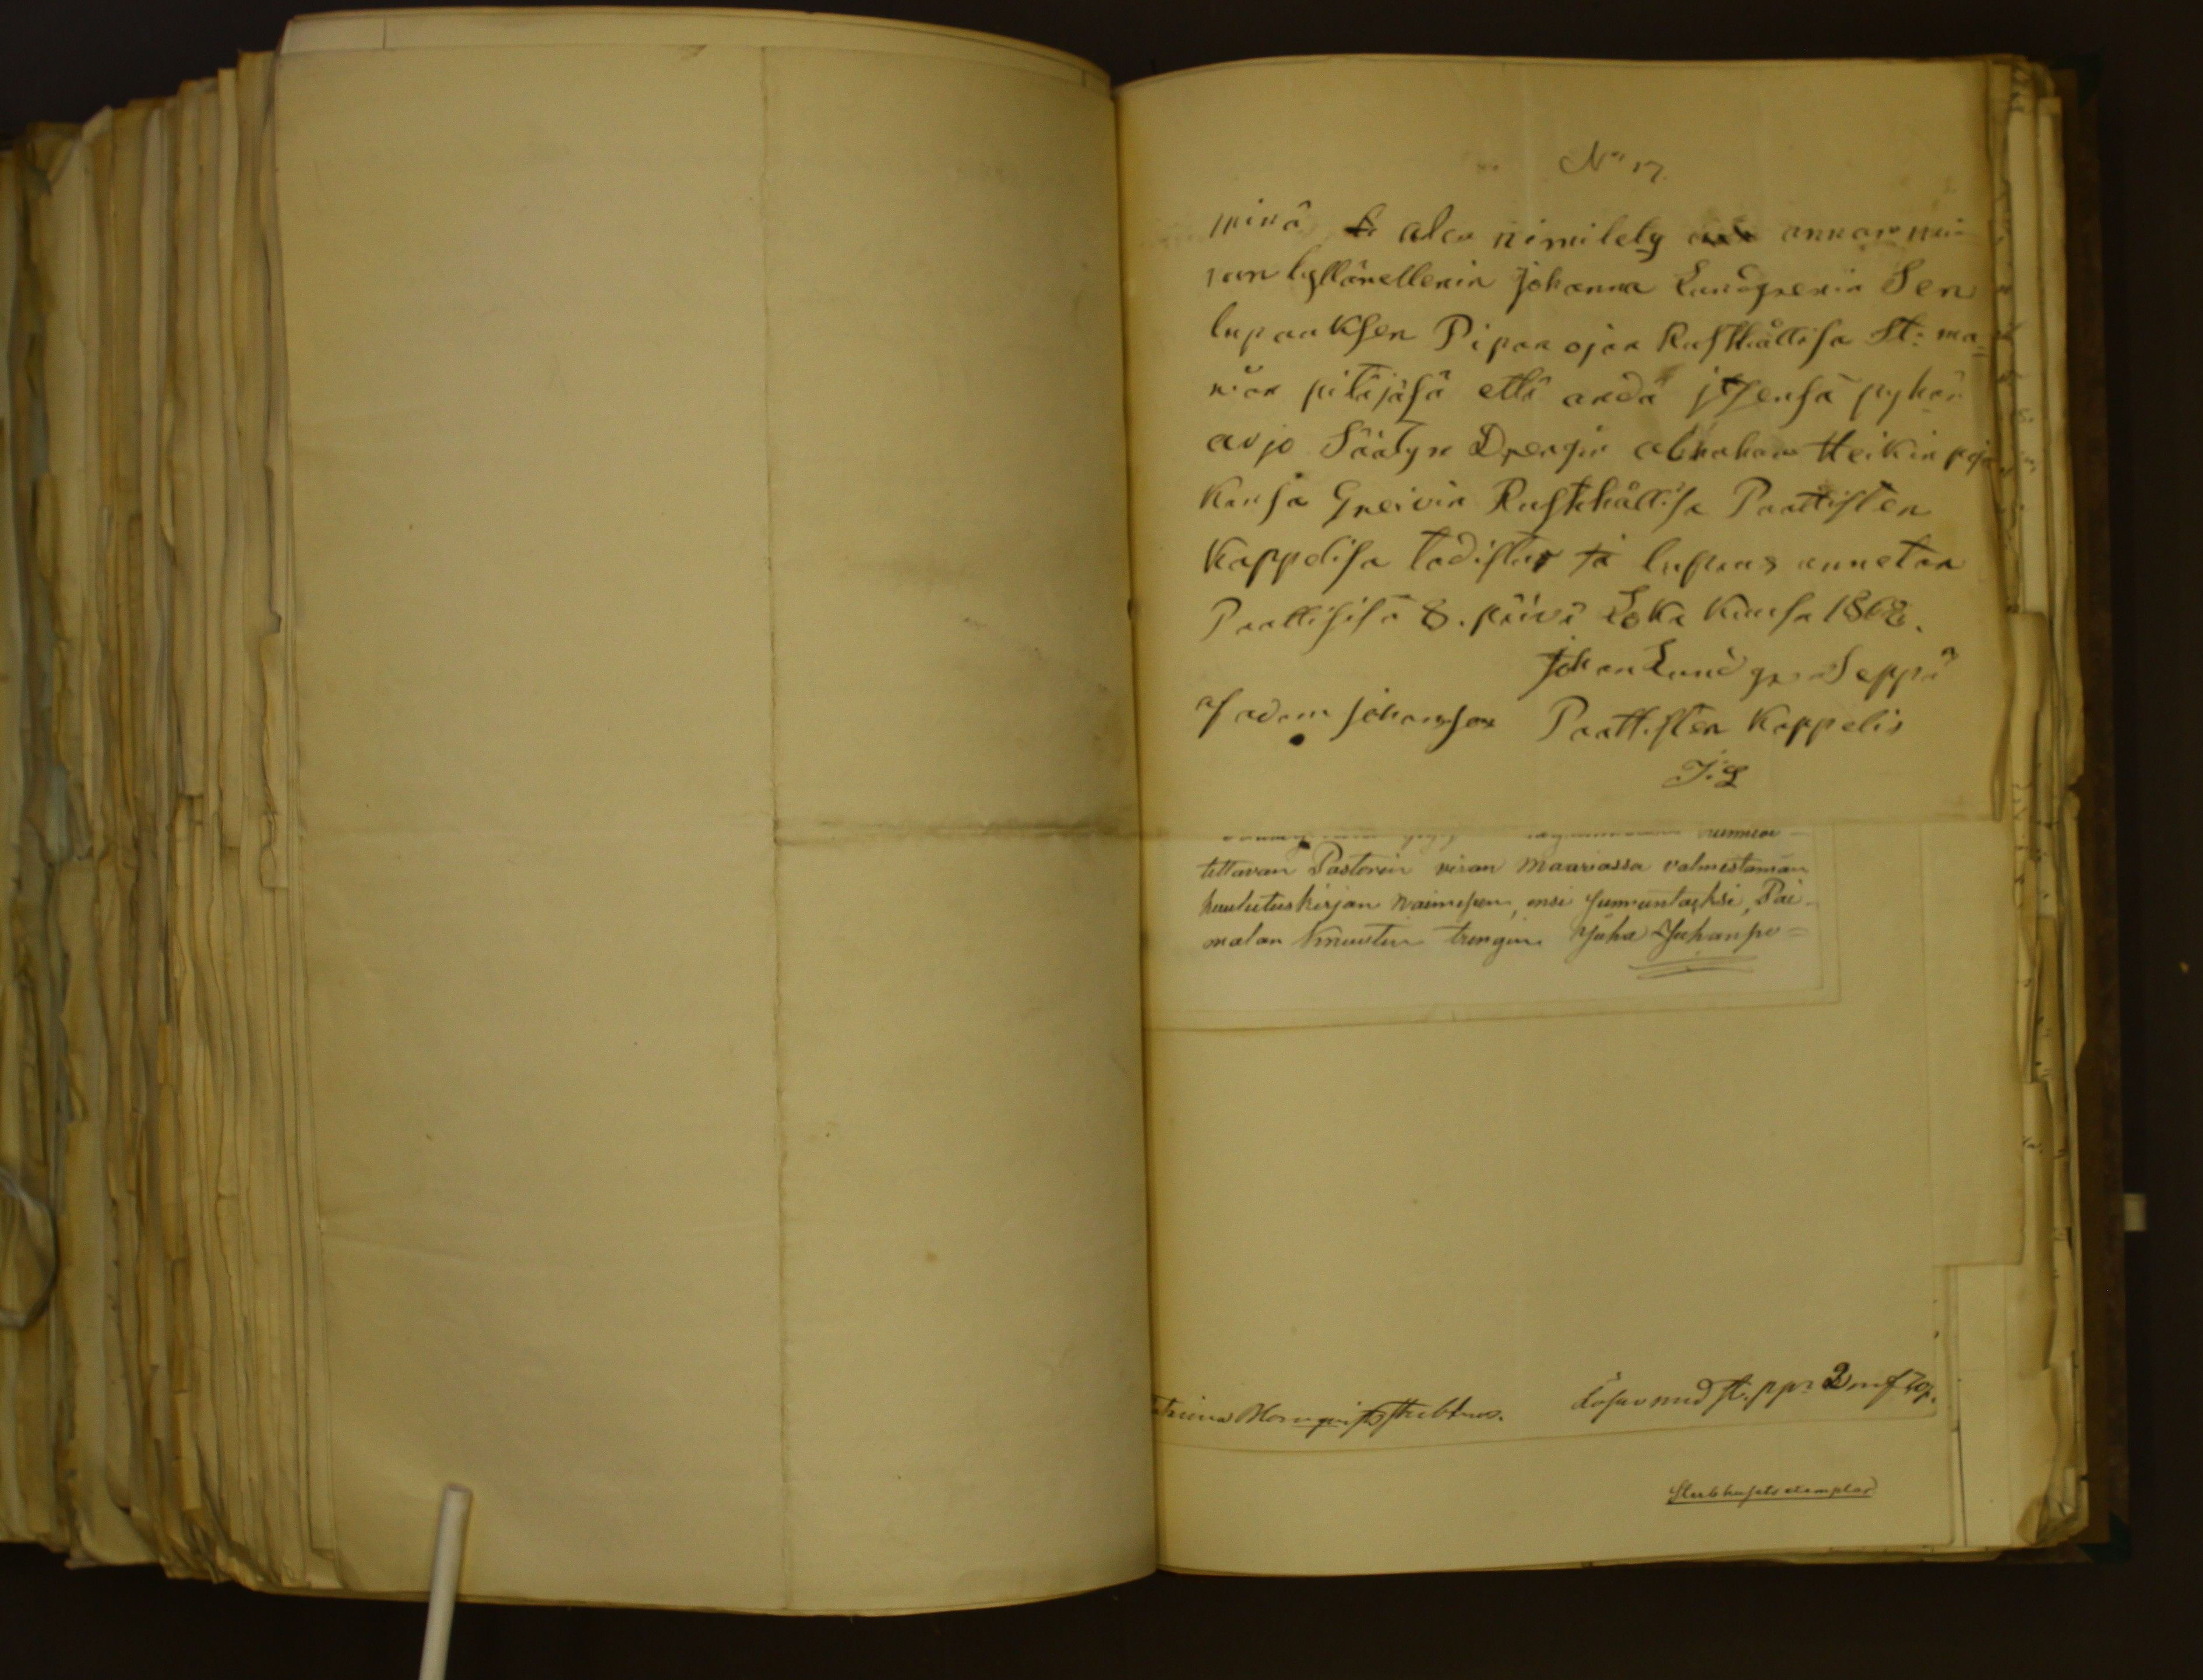 No 17.
minä ala nimitety annan mi-
nun tyttärelleni Johanna Lundgrenin Sen
lupauksen Pipan ojan Rusthållisa St: ma=
rian pitäjäsä että anda ittensä pyhän
avjo Säätyn Drengin abraham Heikin poja
kansa Greivin Rusthållisa Paattisten
Kappelisa todistus ja lupaus annetan
Paattisisa 8. päivä Loka kuusa 1868.
Johan Lundgren Seppä
af adam johansson Paattisten Kappelis
J. L
tettavan Pastorin viran Maariassa valmistaman
kuulutuskirjan naimiseen, ensi sunnuntaiksi, Pai-
malan Knuutin trengin Juha Juhanpo=
Lösen med st. ppr 2 mf 70 p.
Sterbhusets exemplar